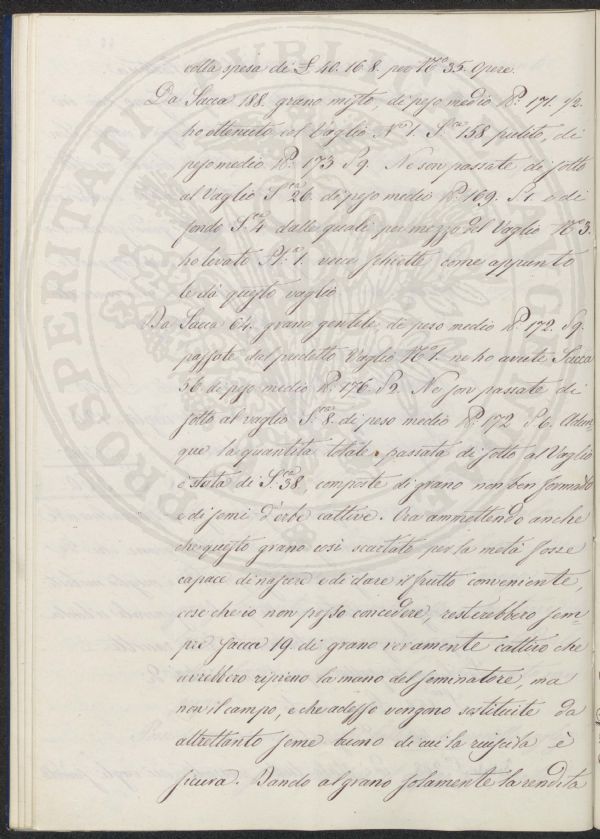 colla spesa di £ 40. 16. 8. per N.º 35. Opere.
Da Sacca 188. grano misto, di peso medio ℔. 171. 1/2.
ho ottenuto col Vaglio N.º 1. S.ca 158 pulito, di
peso medio ℔. 173 S 9. Ne son passate di sotto
al Vaglio S.ca 26. di peso medio ℔. 169. S 1. e di
fondo S.ca 4 dalle quali per mezzo del Vaglio N.º 3.
ho levato St.a 1. vecce schiette come appunto
le dà questo vaglio
Da Sacca 64. grano gentile, di peso medio ℔. 172. S 9.
passate dal predetto Vaglio N.º 1. ne ho avute Sacca
56. di peso medio ℔. 176. S 2. Ne son passate di
sotto al vaglio S.ca 8. di peso medio ℔. 172 S. 6. Adun
que la quantità totale, passata di sotto al Vaglio
è stata di S.ca 38 composte di grano non ben formato
e di semi d'erbe cattive. Ora ammettendo anche
che questo grano così scartato per la metà fosse
capace di nascere e di dare il frutto conveniente,
cose che io non posso concedere, resterebbero sem-
pre Sacca 19. di grano veramente cattivo che
avrebbero ripieno la mano del seminatore, ma
non il campo, e che adesso vengono sostituite da
altrettanto seme buono di cui la riuscita è
sicura. Dando al grano solamente la rendita
PROSPERITATI PUBLICAE